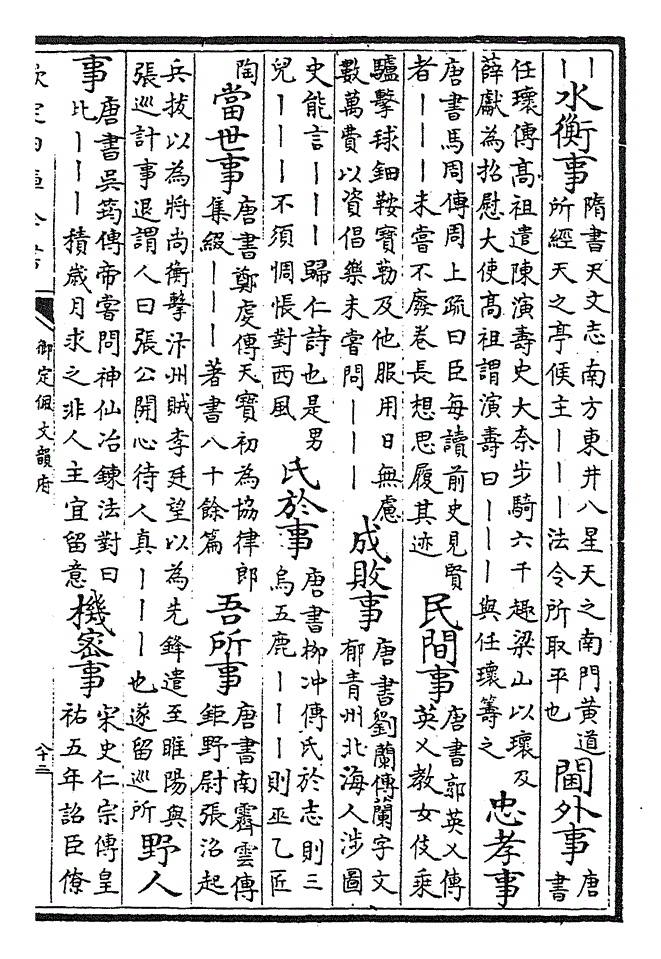 丨
丨
水衡事
隋書天文志南方東井八星天之南門黄道
所經天之亭候主丨丨丨法令所取平也
閫外事
唐
書
任瓌傳髙祖遣陳演壽史大奈步騎六千趣梁山以瓌及
薛獻為招慰大使髙祖謂演壽曰丨丨丨與任瓌籌之
忠孝事
唐書馬周傳周上疏曰臣每讀前史見賢
者丨丨丨未嘗不廢卷長想思履其迹
民間事
唐書郭英乂傳
英乂教女伎乘
驢擊球鈿鞍寳勒及他服用日無慮
數萬費以資倡樂未嘗問丨丨丨
成敗事
唐書劉蘭傳蘭字文
郁青州北海人涉圖
史能言丨丨丨歸仁詩也是男
兒丨丨丨不須惆悵對西風
氏於事
唐書柳冲傳氏於志則三
烏五鹿丨丨丨則巫乙匠
陶
當世事
唐書鄭虔傳天寳初為協律郎
集綴丨丨丨著書八十餘篇
吾所事
唐書南霽雲傳
鉅野尉張沼起
兵拔以為將尚衡擊汴州賊李廷望以為先鋒遣至睢陽與
張巡計事退謂人曰張公開心待人真丨丨丨也遂留巡所
野人
事
唐書吳筠傳帝嘗問神仙冶鍊法對曰
比丨丨丨積歳月求之非人主宜留意
機密事
宋史仁宗傳皇
祐五年詔臣僚
欽定四庫全書
御定佩文韻府